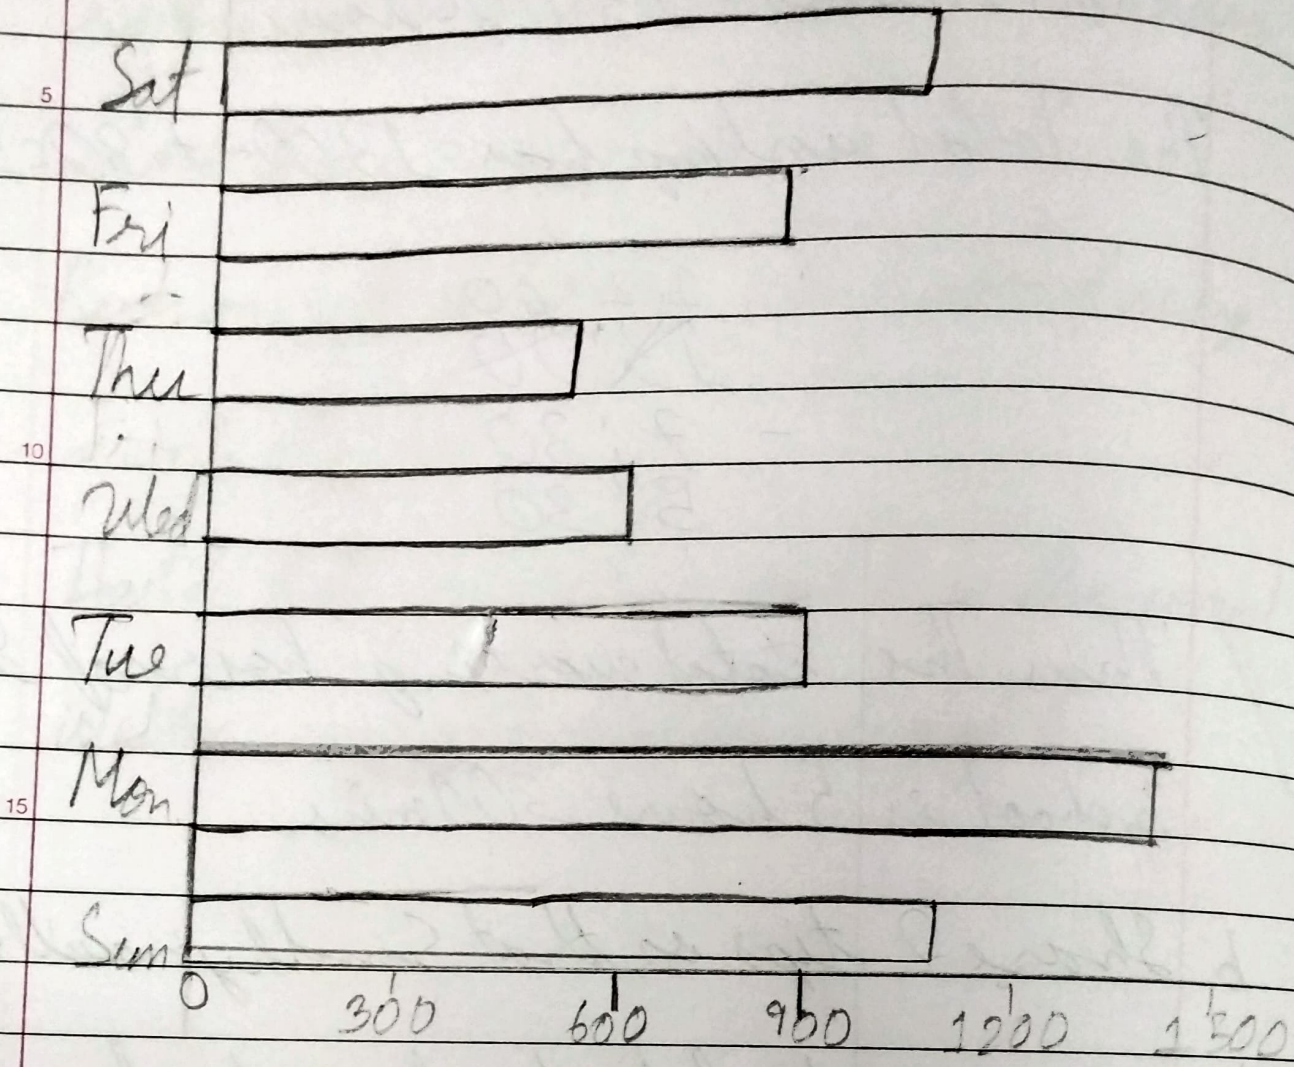 5 Sat
Fri
Thu
10
Wed
Tue
Mon
15
Sun
0 300 600 900 1200 1500